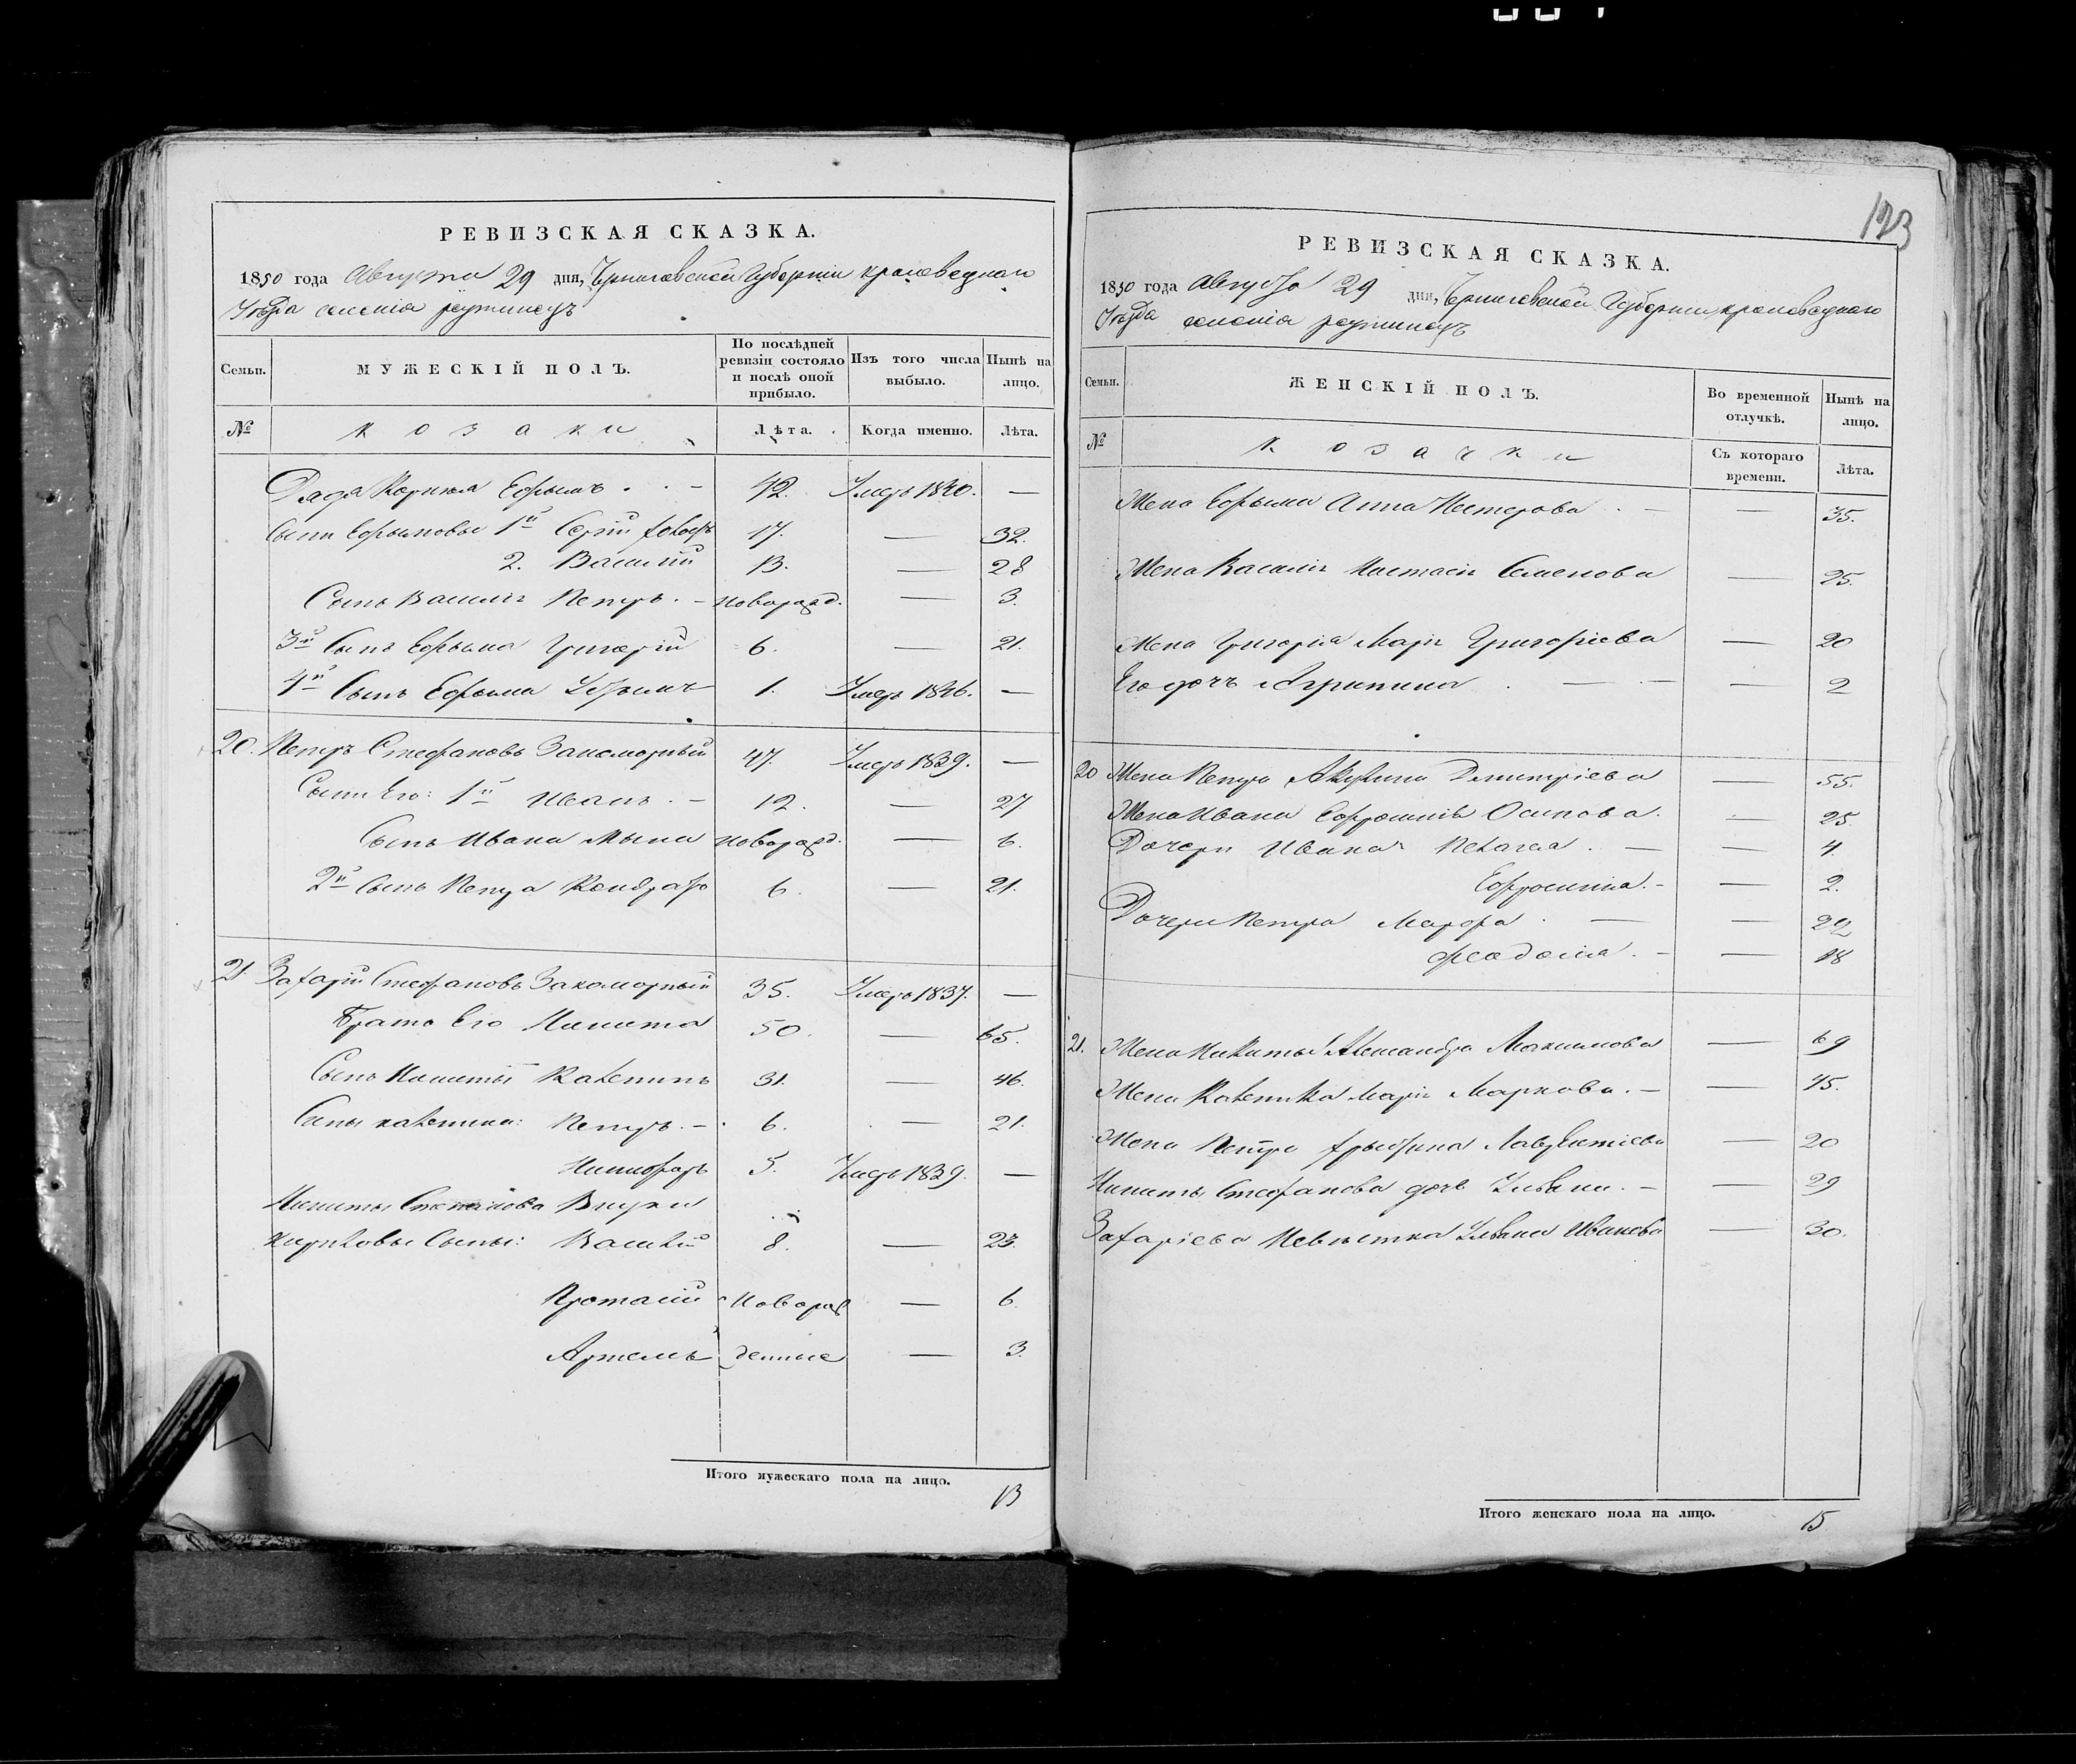 РЕВИЗСКАЯ СКАЗКА.
1850 года Августа 29 дня, Черниговской Губерніи кролевецкаго
Уѣзда селенія реутинецъ
Семьи.
МУЖЕСКІЙ ПОЛЪ.
По послѣдней ревизіи состояло и послѣ оной прибыло.
Изъ того числа выбыло.
Нынѣ на лицо.
№
козаки
Лѣта.
Когда именно.
Лѣта.
Дядя Ефрымъ . . – 42. Умеръ 1840. —
Сыны Ефрымовы 1й Сергій 17. — 32.
2. Василий 13. — 28
Сынъ Василія Петръ. – новорожд. — 3.
3й Сынъ Ефрыма Григорій 6. — 21.
4й Сынъ Ефрыма 1. Умеръ 1846. —
20. Петръ Стефановъ Закоморный 47. Умеръ 1839. —
Сыны Его: 1й Иванъ . – 12. — 27
Сынъ Ивана новорожд. — 6.
2й Сынъ Петра Кондратъ 6. — 21.
21. Захарій Стефановъ Закоморный 35. Умеръ 1837. —
Братъ Его Никита 50. — 65.
Сынъ Никиты Каленикъ 31. — 46.
Сыны каленика: Петръ. – 6. — 21.
Никифоръ 5. Умеръ 1839. —
Никиты Степанова Внуки
Сыны: Василий 8. — 23.
Протасій новорож — 6.
Артемъ денные — 3.
Итого мужескаго пола на лицо.
13
123
РЕВИЗСКАЯ СКАЗКА.
1850 года Августа 29 дня, Черниговской Губерніи кролевецкаго
Уѣзда селенія реутинецъ
Семьи.
ЖЕНСКІЙ ПОЛЪ.
Во временной отлучкѣ.
Нынѣ на лицо.
№
козачки
Съ котораго времени.
Лѣта.
Жена Ефрыма Анна Нестерова . — — 35.
Жена Василія Настасія Семенова — 25.
Жена Григорія Марія Григоріева — 20
Его дочь Агрипина . — — 2
20 Жена Петра Акулина Дмитріева — 55.
Жена Ивана Ефросинія Осипова. — 25
Дочери Ивана Пелагея . — — 4.
Ефросинія. – — 2.
Дочери Петра Марфа . — — 22
Феодосія . – — 18
21. Жена Никиты Александра Максимова — 69
Жена Каленика Марія Маркова. – — 45.
Жена Петра Лаврентіева — 20
Никиты Стефанова дочь Ульяна. – — 29
Захаріева Невѣстка Ульяна Иванова — 30.
Итого женскаго пола на лицо.
15